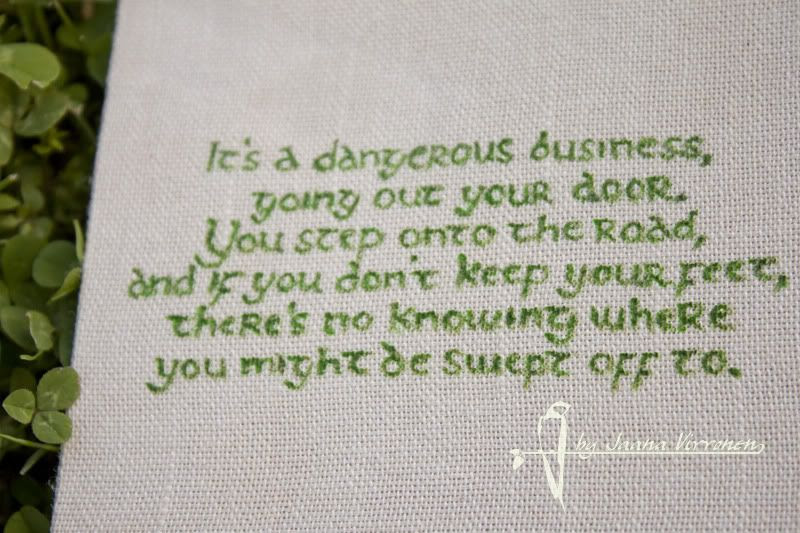 It's a dangerous business,
going out your door.
You step onto the road,
and if you don't keep your feet,
there's no knowing where
you might be swept off to.
by Jaana Virronen